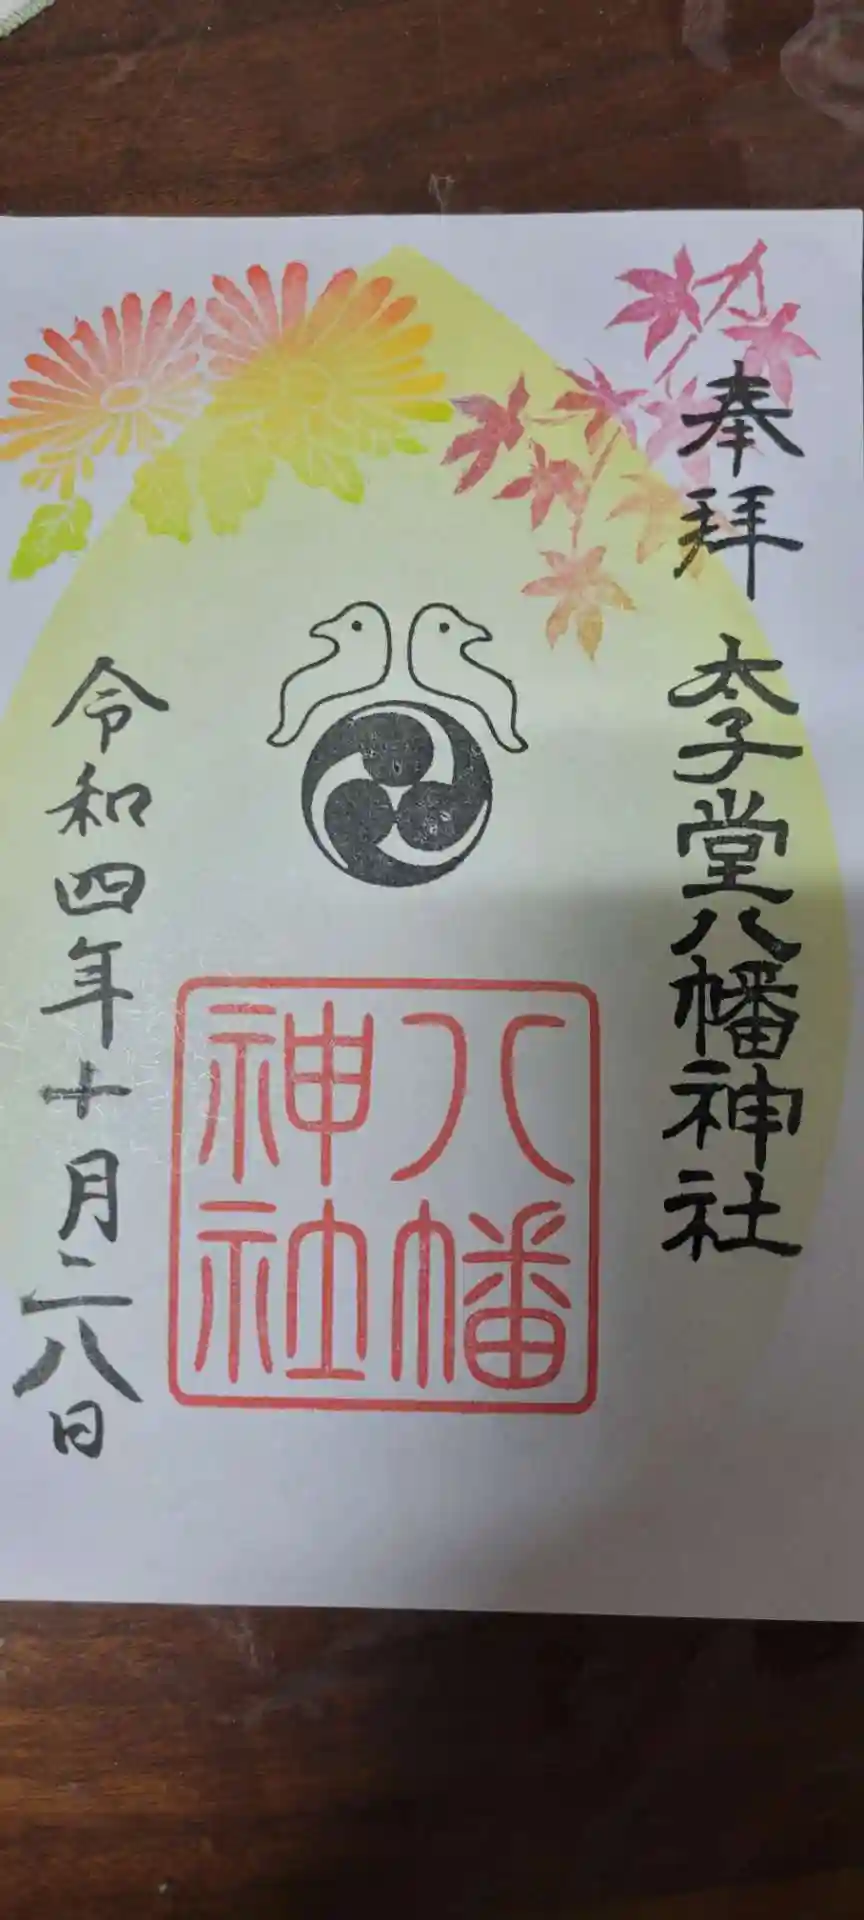 奉拝
太子堂八幡神社
八幡
神社
令和四年十月二八日